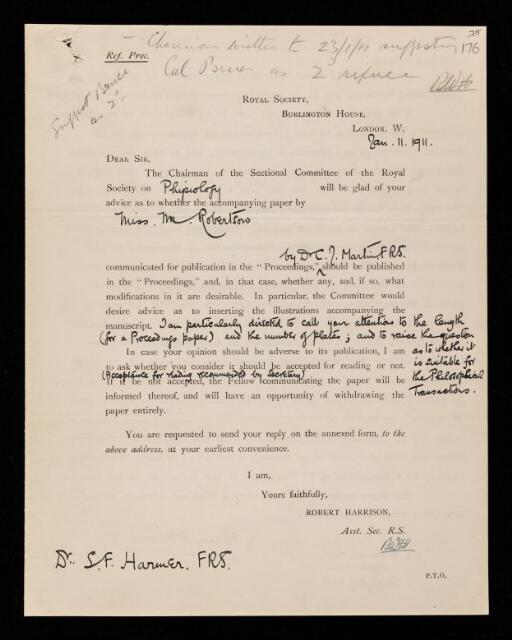 75
176
Ref. Proc.
Chairman written to 23/1/11 suggesting
Col Bruce as 2nd referee
RWFH
Suggest Bruce
as 2
ROYAL SOCIETY,
BURLINGTON HOUSE,
LONDON, W.
Jan. 11. 1911.
DEAR SIR,
The Chairman of the Sectional Committee of the Royal
Society on Physiology will be glad of your
advice as to whether the accompanying paper by
Miss. M. Robertson
by Dr C. J. Martin, FRS.
communicated for publication in the "Proceedings," should be published
in the "Proceedings," and, in that case, whether any, and, if so, what
modifications in it are desirable. In particular, the Committee would
desire advice as to inserting the illustrations accompanying the
manuscript. I am particularly directed to call your attention to the length
(for a Proceedings paper) and the number of plates; and to raise the question
as to whether it
is suitable for
the Philosophical
Transactions.
In case your opinion should be adverse to its publication, I am
to ask whether you consider it should be accepted for reading or not.
(Acceptance for reading recommended by Secretary)
If it be not accepted, the Fellow communicating the paper will be
informed thereof, and will have an opportunity of withdrawing the
paper entirely.
You are requested to send your reply on the annexed form, to the
above address, at your earliest convenience.
I am,
Yours faithfully,
ROBERT HARRISON,
Asst. Sec. R.S.
RWFH
Dr. S. F. Harmer, FRS.
P.T.O.